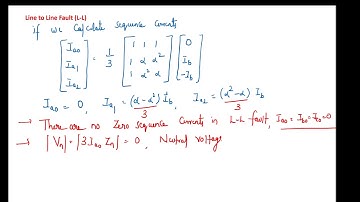 Line to Line Fault (L-L)
if we calculate sequence currents
[Ia0 Ia1 Ia2] = 1/3 [1 1 1; 1 α α²; 1 α² α] [0 Ib -Ib]
Ia0 = 0, Ia1 = (α-α²) Ib / 3, Ia2 = (α²-α) Ib / 3
→ There are no Zero sequence currents in L-L fault, Ia0 = Ib0 = Ic0 = 0
→ |Vn| = |3.Ia0 Zn| = 0, Neutral voltage